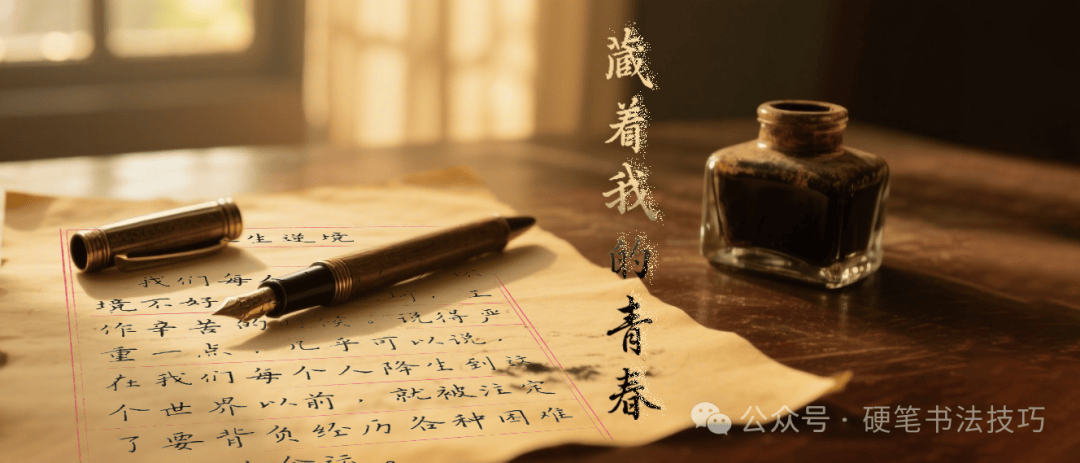 生逆境
我们每
境不好
作辛苦的 说得严
重一点，几乎可以说，
在我们每个人降生到这
个世界以前，就被注定
了要背负经历各种困难
藏着我的青春
公众号·硬笔书法技巧